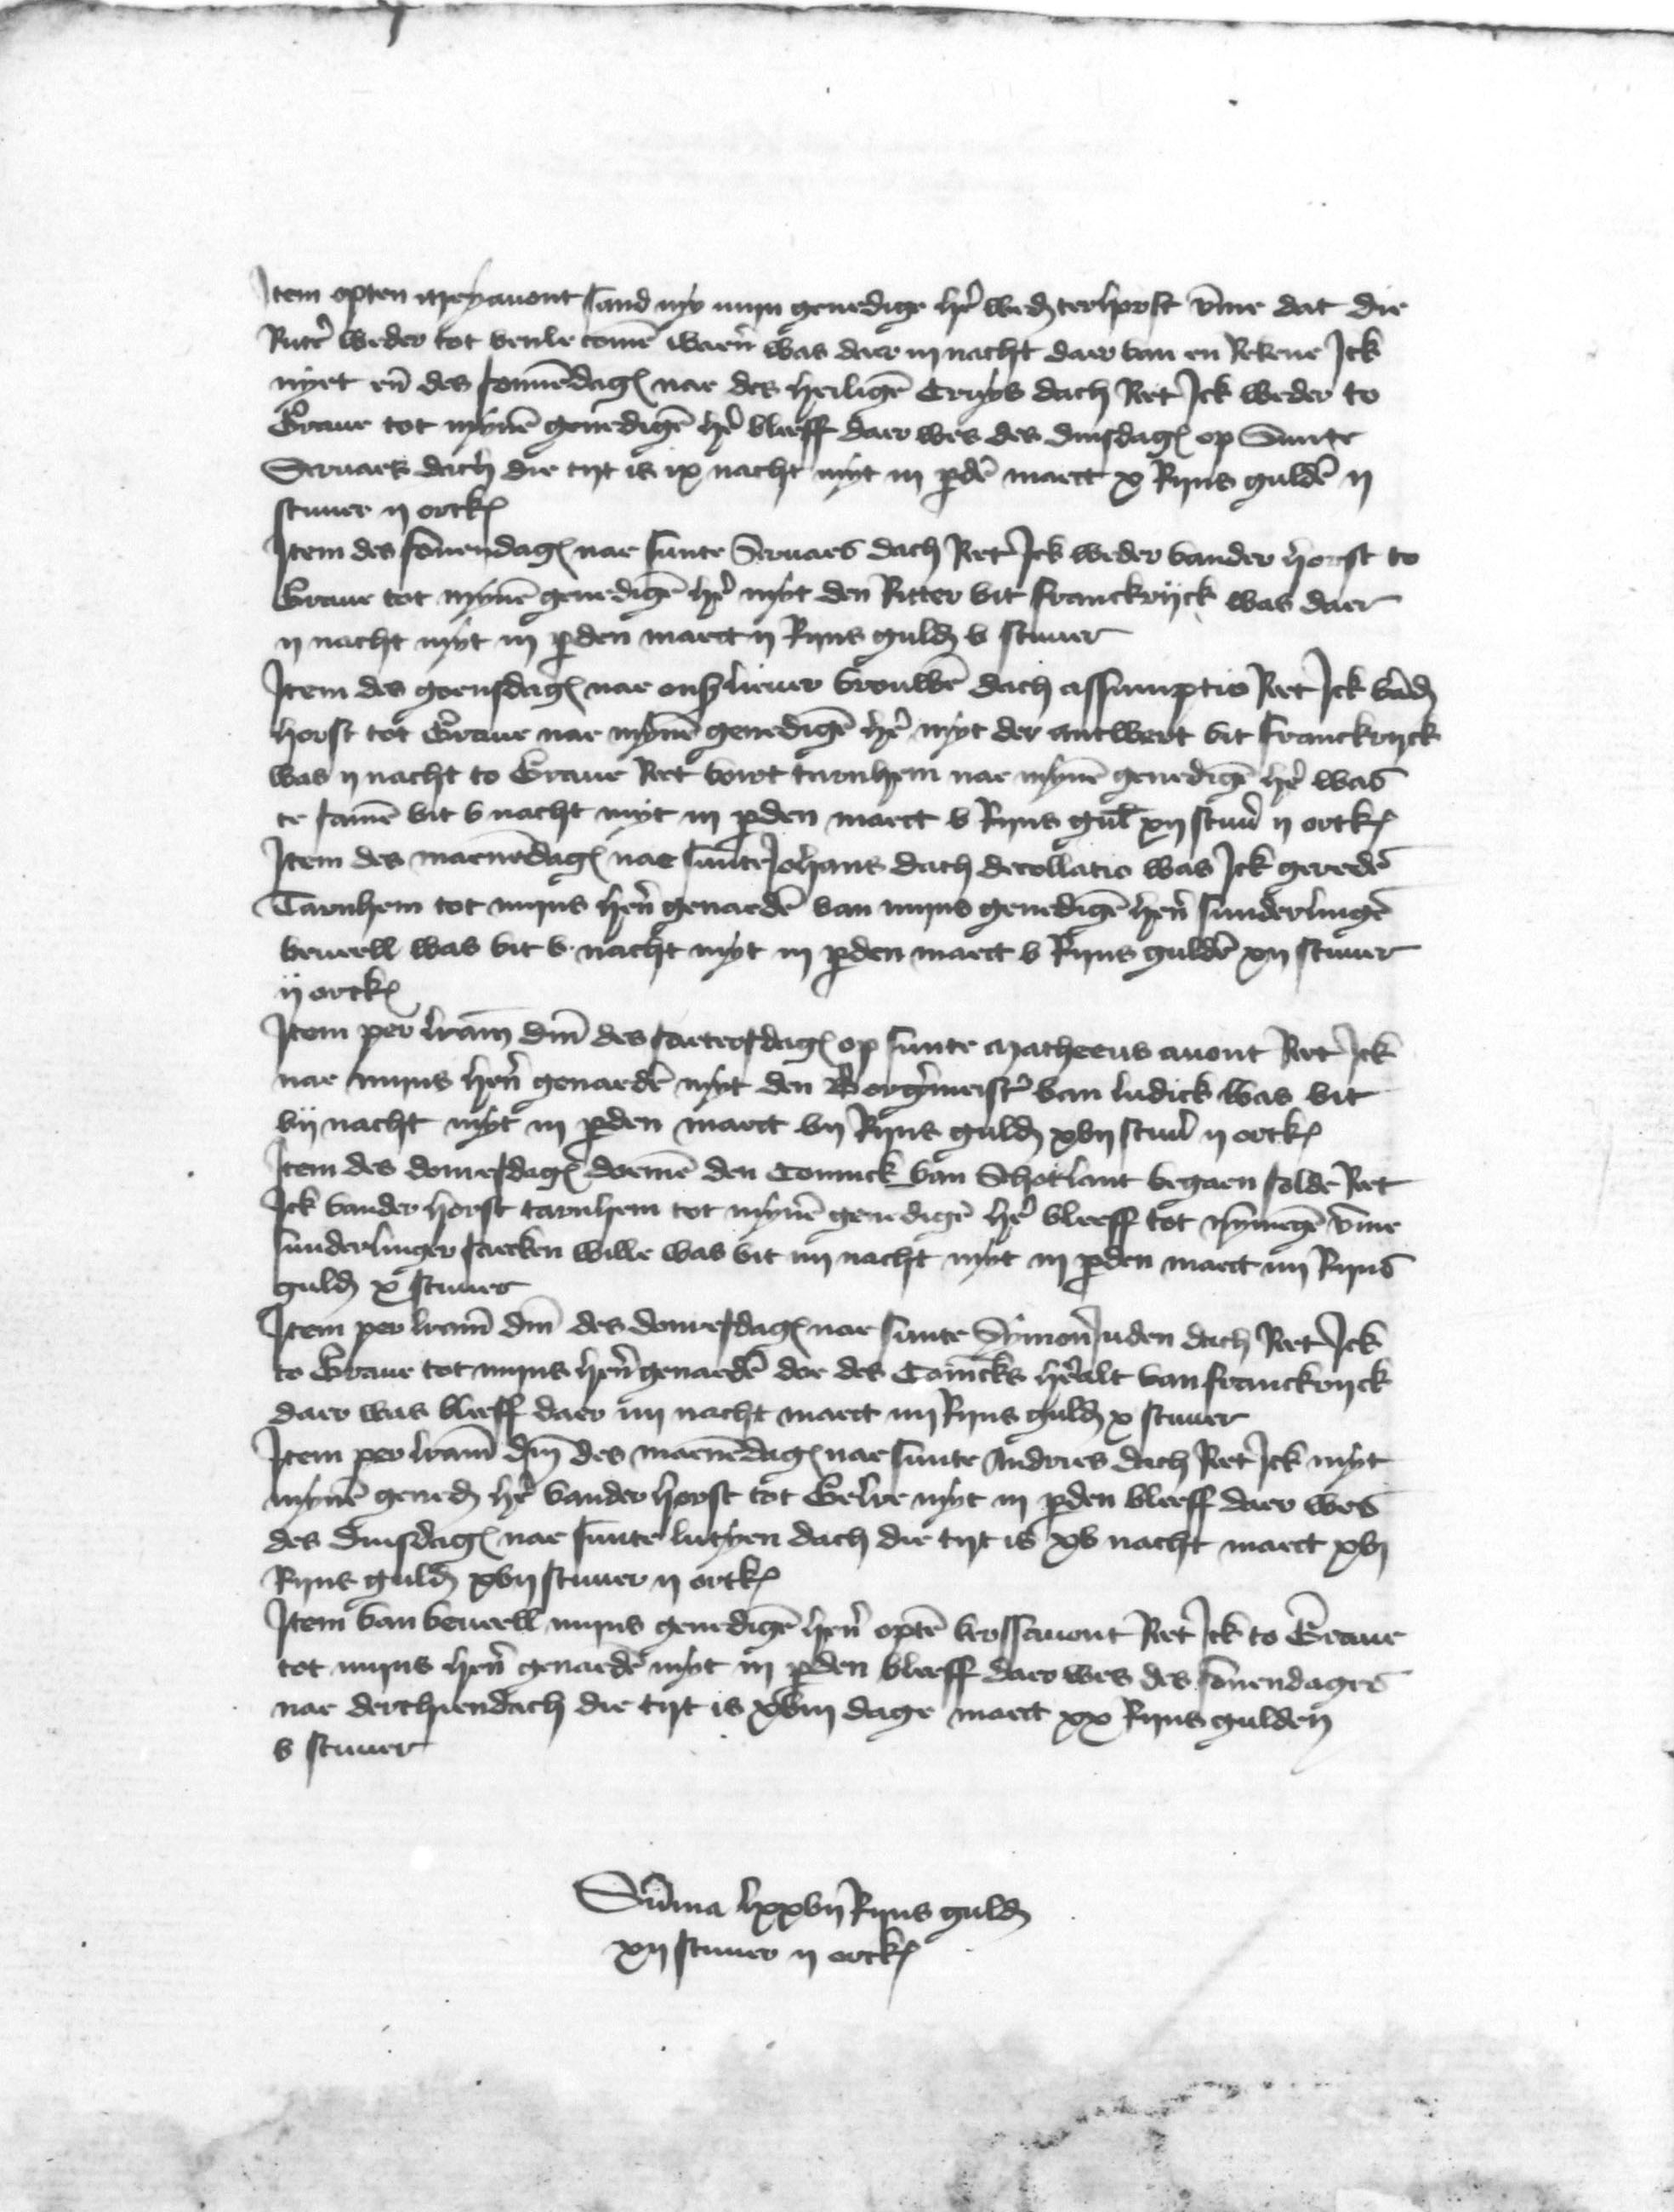 Item opten meyauont sand my myn genedige h̄er wed̄ ter horst v̄me dat die
Ruter weder tot venle comē waerē was daer iij nacht daer van en Rekene Ick
nyet eñ des sonnēdag̃ nae des heiligē Cruys dach Reet Ick weder to
Graue tot mynē genedigē hēr bleeff daer wes des dinsdag̃ op Sunte
Seruaes dach die tijt is ix nacht myt iij p̄dē maect x Rijns guldē ij
stuuer ij ortk̃
Item des sōnendag̃ nae sunte Seruaes dach Reet Ick weder vander horst to
Graue tot mynē genedigē hēr myt den Ritter vit franckrijck was daer
ij nacht myt iij p̄den maect ij Rijns guld̄ v stuuer
Item des goensdag̃ nae onß lieuer vrouwē dach assumptio Reet Ick vād̄
horst tot Graue nae mynē genedigē hēr myt der antwert vit franckryck
was ij nacht to Graue Reet vort tarnhem nae mynē genedigē hēr was
te samē vit v nacht myt iij p̄den maect v Rijns gul̄ xij stuū ij ortk̃
Item des maenēdag̃ nae sunte Johans dach decollatio was Ick geredē
Tarnhem tot mijns hēn genaedē van mijns genedigē hēn sunderlingē
beueell was vit v nacht myt iij p̄den maect v Rijns guldē xij stuuer
ij ortk̃
Item per lrām dm̄ des saetersdag̃ op sunte Matheeus auont Reet Ick
nae mijns hēn genaedē myt den Borgmeistr̄ van ludick was vit
vij nacht myt iij p̄den maect vij Rijns guld̄ xvij stuū ij ortk̃
Item des donresdag̃ doemē den Conинck van Schotlant begaen solde Reet
Ick vander horst tarnhem tot mynē genedigē hēr bleeff tot nymegē v̄me
sunderlinger saecken wille was vit iiij nacht myt iij p̄den maect iiij Rijns
guld̄ x stuuer
Item per lrām dm̄ des donresdag̃ nae sunte Symon Juden dach Reet Ick
to Graue tot mijns hēn genaedē doe des Conīcks heralt van franckryck
daer was bleeff daer iiij nacht maect iiij Rijns guld̄ x stuuer
Item per lrām dm̄ des maenēdag̃ nae sunte Andries dach Reet Ick myt
mynē gened̄ hēr vander horst tot Gelre myt iij p̄den bleeff daer wes
des dinsdag̃ nae sunte lucyen dach die tijt is xv nacht maect xvj
Rijns guld̄ xvij stuuer ij ortk̃
Item van beueell mijns genedigē hēn optē kerssauont Reet Ick to Graue
tot mijns hēn genaedē myt iij p̄den bleeff daer wes des sōnendages
nae derthiendach die tijt is xviij dage maect xx Rijns gulden
v stuuer
Sūma lxxvij Rijns guld̄
xij stuuer ij ortk̃